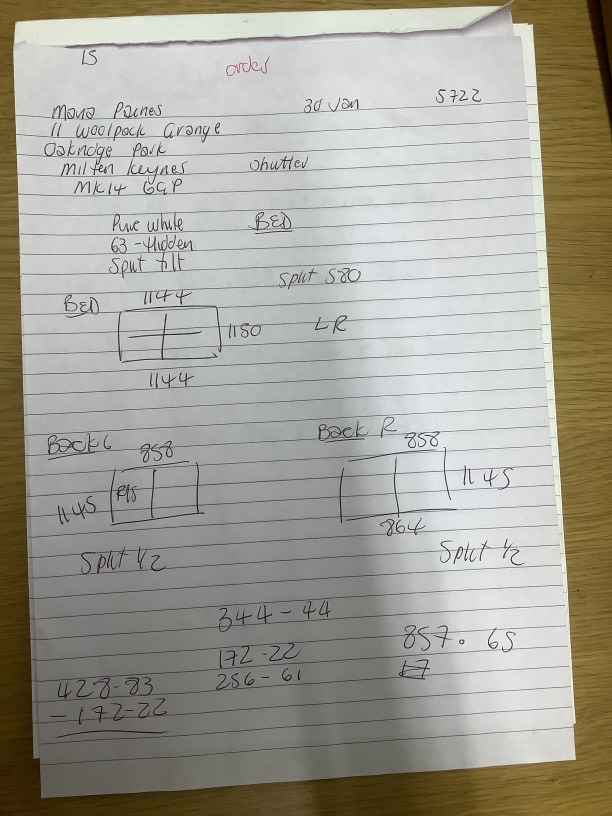 15
order
Mana Paines 30 Jan 5722
11 Woolpack Grange
Oakridge Park
Milten Keynes Shutter
MK14 6GP
Pure white BED
63-Hidden
Split tilt
Split 580
BED 1144
1180 LR
1144
Back L 858
1145
Split 1/2
Back R 858
1145
864
Split 1/2
344-44
172-22 857.65
256-61
428-83
-172-22